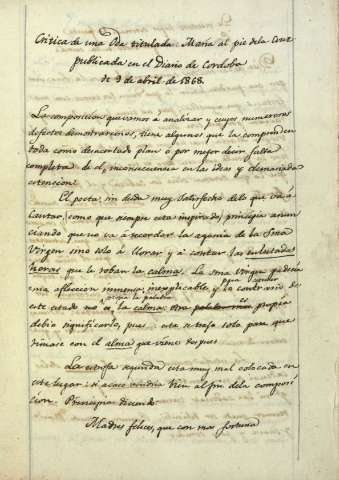 Critica de una Oda titulada: Maria al pie de la Cruz
publicada en el Diario de Cordoba
de 9 de abril de 1868.
La composicion que vamos a analizar y cuyos numerosos
defectos demostraremos, tiene algunos que la comprenden
toda como desacertado plan o por mejor decir falta
completa de el, inconsecuencia en las ideas y demasiada
estension.
El poeta, sin duda muy satisfecho de lo que va á
cantar, como que siempre esta inspirado, principia anun
ciando que no va á recordar la agonia de la Sma
Virgen sino solo á llorar y á contar las enlutadas
horas que le roban la calma. La Sma Virgen padecia
una afliccion inmensa, inesplicable, y para espresar lo contrario de
este estado no es la calma la palabra propia
debio significarlo, pues esta se trajo solo para que
rimase con el alma que viene despues
La estrofa segunda esta muy mal colocada en
este lugar: si acaso vendria bien al fin de la composi
cion. Principia diciendo:
Madres felices, que con mas fortuna